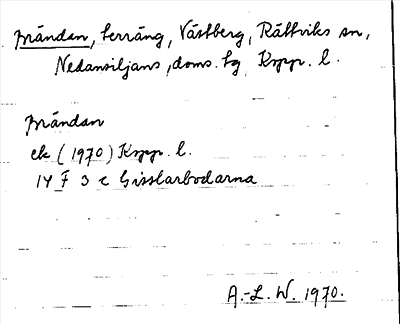 Mrändan, terräng, Västberg, Rättviks sn,
Nedansiljans, doms. tg Kopp. l.
Mrändan
ek (1970) Kopp. l.
14 F 3 c Gisslarbodarna
A.-L. W. 1970.